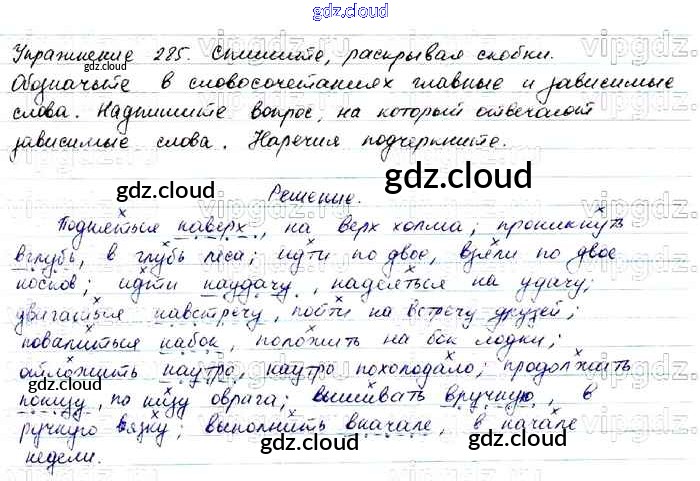 gdz.cloud
Упражнение 285. Спишите, раскрывая скобки.
gdz.cloud
Обозначьте в словосочетаниях главные и зависимые
слова. Надпишите вопрос, на который отвечают
зависимые слова. Наречия подчеркните.
gdz.cloud gdz.cloud
Решение.
Подняться наверх, на верх холма; проникнуть
вглубь, в глубь леса; идти по двое, взяли по двое
носков; идти наудачу, надеяться на удачу;
двигаться навстречу, пойти на встречу друзей;
повалиться набок, положить на бок лодки;
отложить наутро, наутро похолодало; продолжить
gdz.cloud
понизу, по низу оврага; вышивать вручную, в
ручную вязку; выполнить вначале, в начале
gdz.cloud gdz.cloud
недели.